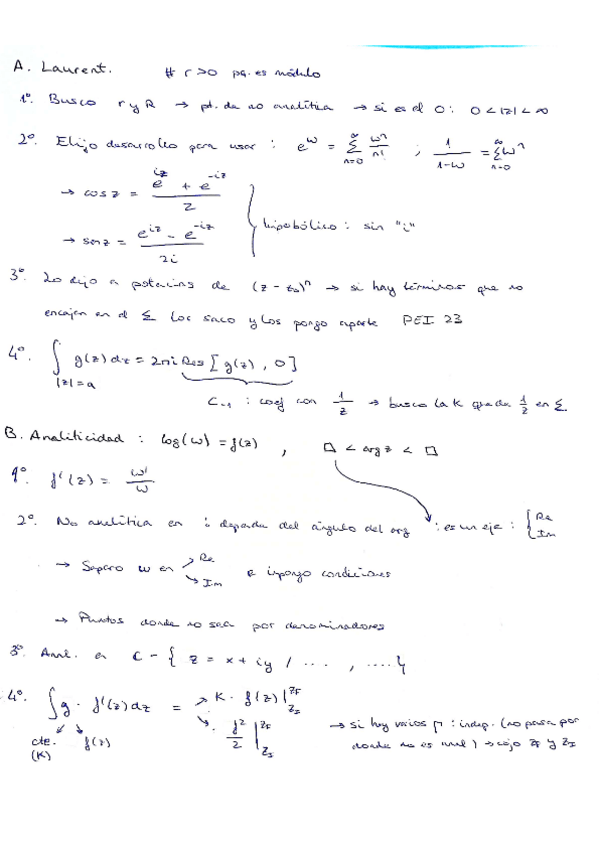 A. Laurent. # r>0 pq. es módulo
1º. Busco r y R → pt. de no analítica → si es el 0: 0<|z|<∞
2º. Elijo desarrollo para usar: e^w = ∑_{n=0}^{∞} w^n/n! ; 1/(1-w) = ∑_{n=0}^{∞} w^n
→ cos z = (e^{iz} + e^{-iz})/2
hipobólico: sin "i"
→ sen z = (e^{iz} - e^{-iz})/2i
3º. Lo dejo a potencias de (z-z₀)^n → si hay términos que no
encajen en el ∑ los saco y los pongo aparte PEI 23
4º. ∫_{|z|=a} g(z)dz = 2πi Res[g(z), 0]
C₋₁ : coef con 1/z → busco la K queda 1/z en ∑
B. Analiticidad: log(w) = f(z), □ < arg z < □
1º. f'(z) = w'/w
2º. No analítica en : depende del ángulo del arg : es un eje: { Re Im
→ Separo w en Re Im e impongo condiciones
→ Puntos donde no sea por denominadores
3º. Anal. en C - { z = x+iy / ... , .... }
4º. ∫ g · f'(z)dz = K · f(z) |_{z_I}^{z_F}
f²/2 |_{z_I}^{z_F} → si hay varios : indep. (no pasa por
cte. (K) f(z) donde no es anal) → cojo z_F y z_I